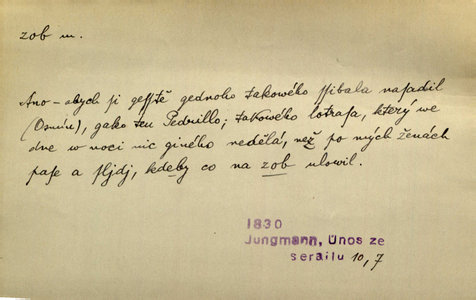 zob m.
Ano – abych ji gesstě gednoho takowého ssibala nasadil
(Osmín), gako ten Pedrillo; takowého lotrasa, který we
dne w noci nic giného nedělá, než po mých ženách
pase a slídj, kdeby co na zob ulowil.
1830
Jungmann, Únos ze
serailu 10,7